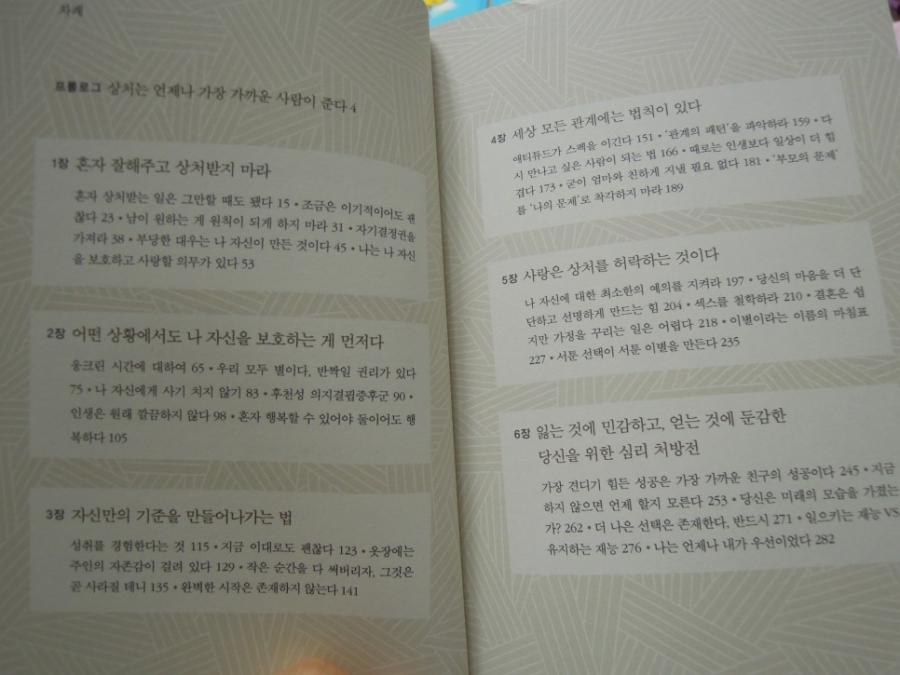 차례
프롤로그 상처는 언제나 가장 가까운 사람이 준다 4
1장 혼자 잘해주고 상처받지 마라
혼자 상처받는 일은 그만할 때도 됐다 15 • 조금은 이기적이어도 괜
찮다 23 • 남이 원하는 게 원칙이 되게 하지 마라 31 • 자기결정권을
가져라 38 • 부당한 대우는 나 자신이 만든 것이다 45 • 나는 나 자신
을 보호하고 사랑할 의무가 있다 53
2장 어떤 상황에서도 나 자신을 보호하는 게 먼저다
웅크린 시간에 대하여 65 • 우리 모두 별이다, 반짝일 권리가 있다
75 • 나 자신에게 사기 치지 않기 83 • 후천성 의지결핍증후군 90 •
인생은 원래 깔끔하지 않다 98 • 혼자 행복할 수 있어야 둘이어도 행
복하다 105
3장 자신만의 기준을 만들어나가는 법
성취를 경험한다는 것 115 • 지금 이대로도 괜찮다 123 • 옷장에는
주인의 자존감이 걸려 있다 129 • 작은 순간을 다 써버리자, 그것은
곧 사라질 테니 135 • 완벽한 시작은 존재하지 않는다 141
4장 세상 모든 관계에는 법칙이 있다
애티튜드가 스펙을 이긴다 151 • ‘관계의 패턴’을 파악하라 159 • 다
시 만나고 싶은 사람이 되는 법 166 • 때로는 인생보다 일상이 더 힘
겹다 173 • 굳이 엄마와 친하게 지낼 필요 없다 181 • ‘부모의 문제’
를 ‘나의 문제’로 착각하지 마라 189
5장 사랑은 상처를 허락하는 것이다
나 자신에 대한 최소한의 예의를 지켜라 197 • 당신의 마음을 더 단
단하고 선명하게 만드는 힘 204 • 섹스를 철학하라 210 • 결혼은 쉽
지만 가정을 꾸리는 일은 어렵다 218 • 이별이라는 이름의 마침표
227 • 서툰 선택이 서툰 이별을 만든다 235
6장 잃는 것에 민감하고, 얻는 것에 둔감한
당신을 위한 심리 처방전
가장 견디기 힘든 성공은 가장 가까운 친구의 성공이다 245 • 지금
하지 않으면 언제 할지 모른다 253 • 당신은 미래의 모습을 가졌는
가? 262 • 더 나은 선택은 존재한다, 반드시 271 • 일으키는 재능 VS
유지하는 재능 276 • 나는 언제나 내가 우선이었다 282